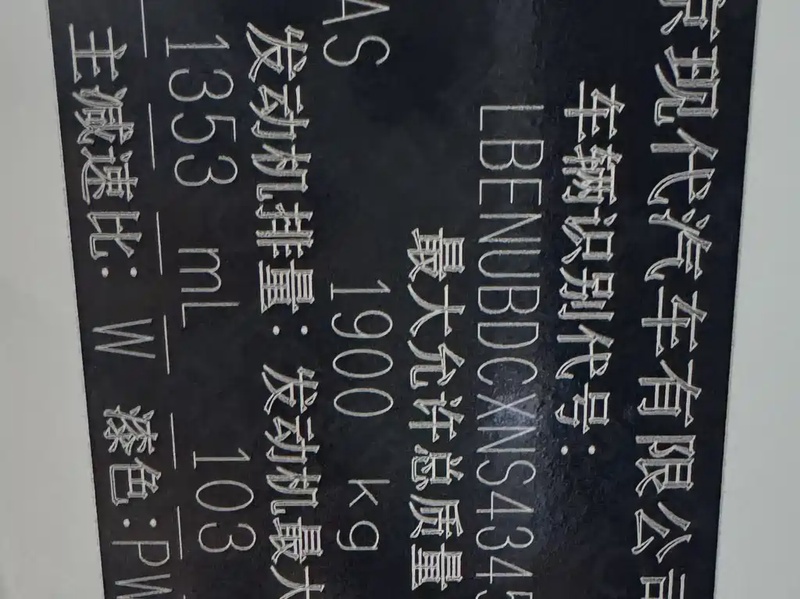 京现代汽车有限公司
车辆识别代号:
LBENUBDCXNS4345
最大允许总质量
1900 kg
AS
发动机排量: 发动机最大
1353 mL 103
主减速比: W 漆色: PW